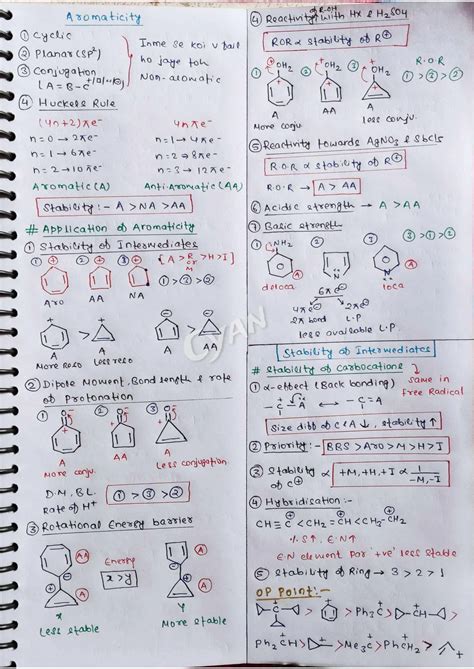 Aromaticity
① Cyclic
② Planar (SP²)
③ Conjugation
④ Huckels Rule
Inme se koi v fail
ho jaye toh
Non-aromatic
(4n+2)πe⁻
4nπe⁻
n=0 → 2πe⁻
n=1 → 4πe⁻
n=1 → 6πe⁻
n=2 → 8πe⁻
n=2 → 10πe⁻
n=3 → 12πe⁻
Aromatic (A)
Anti-Aromatic (AA)
Stability :- A > NA > AA
# Application of Aromaticity
① Stability of Intermediates
① ② ③
[A > R or M > H > I]
① > ③ > ②
Aro AA NA
A A A AA
More reso Less reso
② Dipole Moment, Bond length & rate
of Protonation
① ② ③
O O O
A AA A
More conju. Less conjugation
D.M, BL.
Rate of H⁺
① > ③ > ②
③ Rotational Energy barrier
AA A
Energy
x > y
A AA
x y
Less stable More stable
④ Reactivity with HX & H₂SO₄
R-OH
ROR ∝ stability of R⊕
① ② ③
OH₂ OH₂ OH₂
R.O.R
① > ③ > ②
A AA A
More conju. less conj.
⑤ Reactivity towards AgNO₃ & SbCl₅
R.O.R ∝ stability of R⊕
R.O.R → A > AA
⑥ Acidic strength → A > AA
⑦ Basic strength
① NH₂ ② ③
③ > ① > ②
N N
deloca loca
6πe⁻
4πe⁻ 2πe⁻
2π bond L.P
less available L.P.
CYAN
Stability of Intermediates
# Stability of Carbocations
same in
Free Radical
① α-effect (Back bonding)
-C-A ↔ -C=A
Size diff of C & A ↓, stability ↑
② Priority :- BBS > Aro > M > H > I
③ Stability of C⊕ ∝ +M, +H, +I ∝ 1/-M, -I
④ Hybridisation :-
CH≡C < CH₂=CH < CH₃-CH₂
%S↑, E.N↑
E.N element par '+ve' less stable
⑤ Stability of Ring → 3 > 2 > 1
OP Point :-
C > Ph₃C > CH >
Ph₂CH > > Me₃C > PhCH₂ >